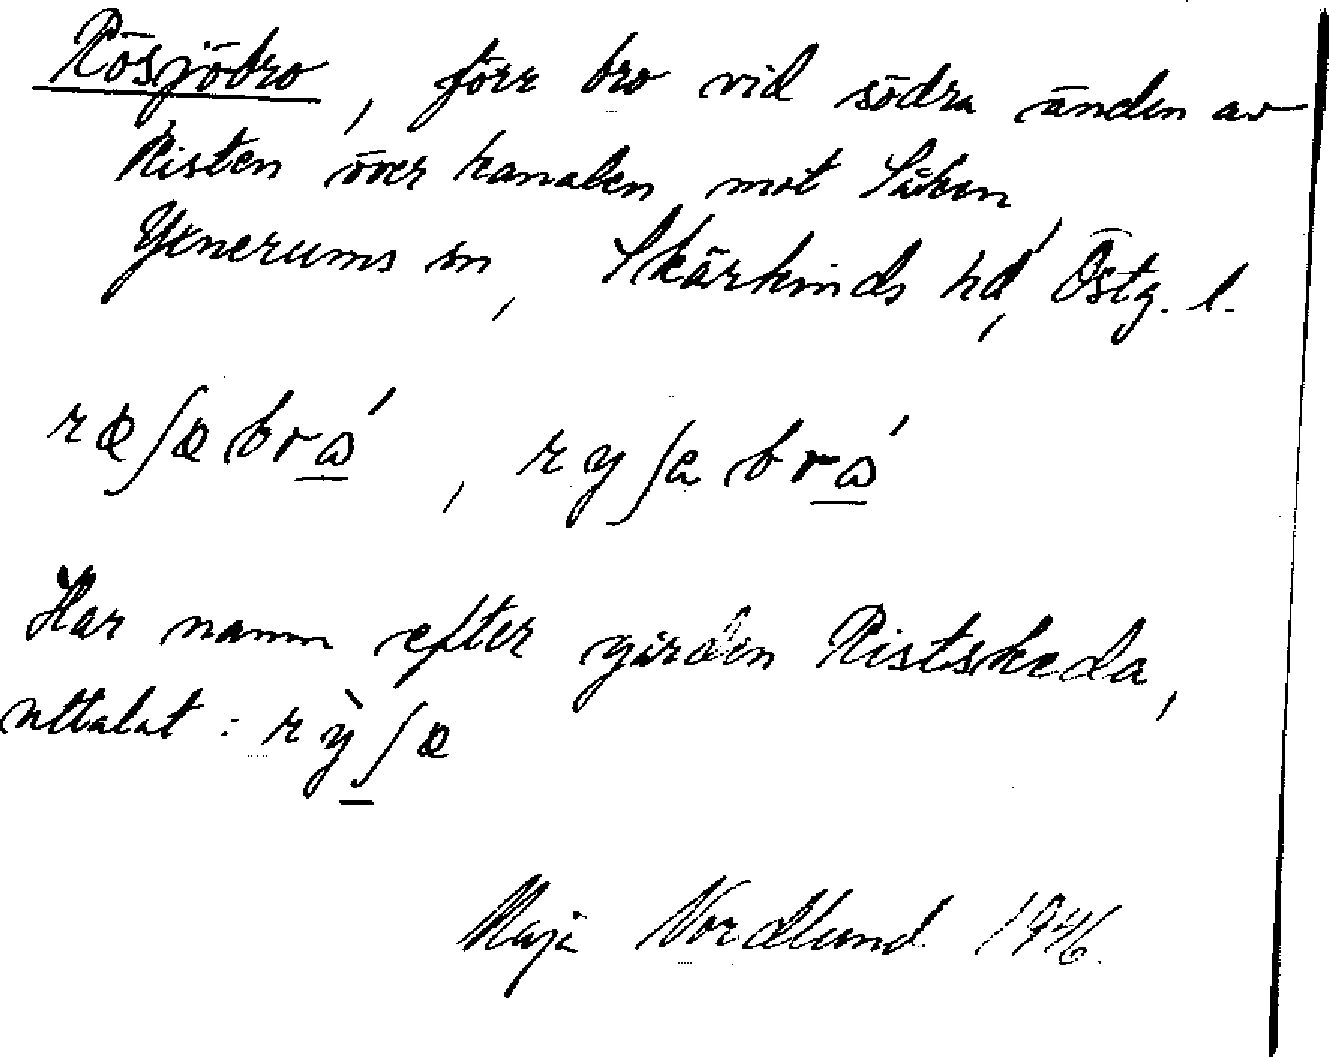 Rösjöbro, förr bro vid södra änden av
Risten över kanalen mot Såken
Yxnerums sn, Skärkinds hd, Östg. l.
ræʃæbrǻ, ryʃabrǻ
Har namn efter gården Ristskeda,
uttalat: rỳʃæ
Maja Nordlund 1946.